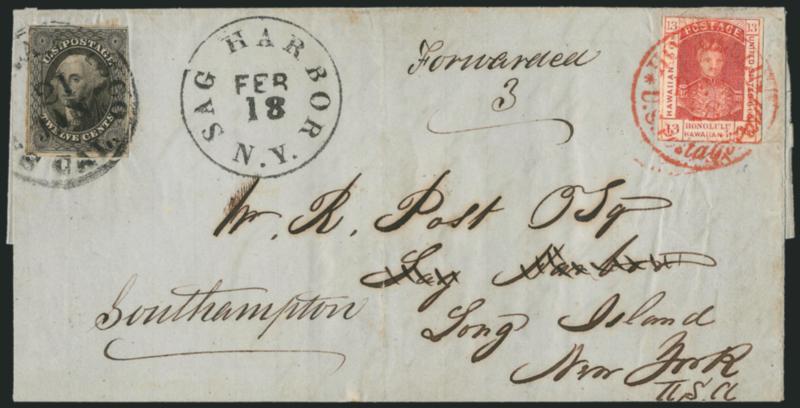 U.S. POSTAGE
TWELVE CENTS
SAG HARBOR
FEB
18
N.Y.
Forwarded
3
13 POSTAGE 13
HAWAIIAN
UNITED STATES
13 HONOLULU
HAWAIIAN
U.S.
W. R. Post Esq
Sag Harbor
Southampton
Long Island
New York
U.S.A